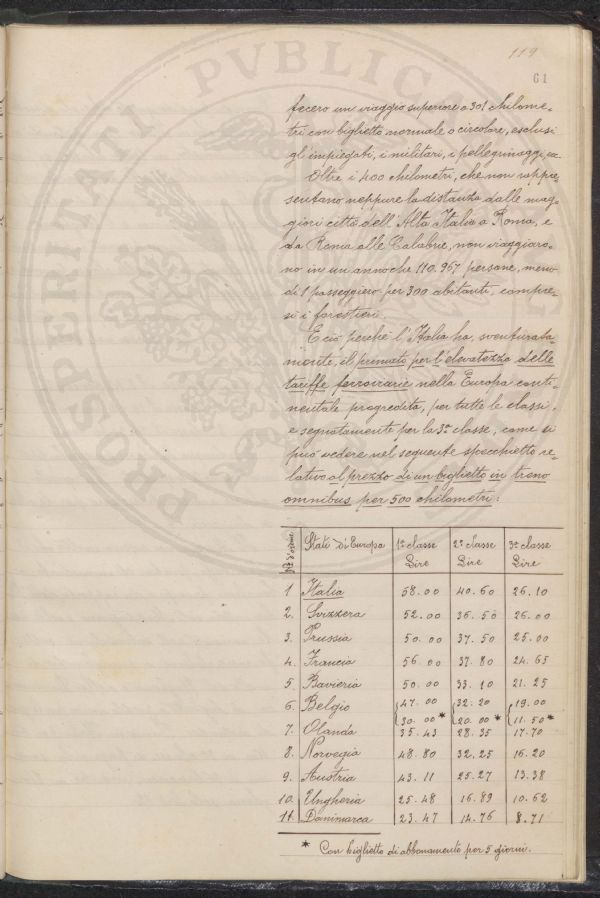 119
61
PROSPERITATI PVBLICAE
fecero un viaggio superiore a 301 chilome-
tri con biglietto normale o circolare, esclusi
gl'impiegati, i militari, i pellegrinaggi, ecc.
Oltre i 400 chilometri, che non rappre-
sentano neppure la distanza dalle mag-
giori città dell'Alta Italia a Roma, e
da Roma alle Calabrie, non viaggiaro-
no in un anno che 110.967 persone, meno
di 1 passeggiero per 300 abitanti, compre-
si i forestieri.
E ciò perchè l'Italia ha, sventurata-
mente, il primato per l'elevatezza delle
tariffe ferroviarie nella Europa conti-
nentale progredita, per tutte le classi,
e segnatamente per la 3ª classe, come si
può vedere nel seguente specchietto re-
lativo al prezzo di un biglietto in treno
omnibus per 500 chilometri:
Nº d'ordine | Stati di Europa | 1ª classe Lire | 2ª classe Lire | 3ª classe Lire
1 Italia 58.00 40.60 26.10
2. Svizzera 52.00 36.50 26.00
3. Prussia 50.00 37.50 25.00
4. Francia 56.00 37.80 24.65
5 Bavieria 50.00 33.10 21.25
6. Belgio 47.00 32.20 19.00
30.00* 20.00* 11.50*
7. Olanda 35.43 28.35 17.70
8. Norvegia 48.80 32.25 16.20
9. Austria 43.11 25.27 13.38
10. Ungheria 25.48 16.89 10.62
11. Danimarca 23.47 14.76 8.71
* Con biglietto di abbonamento per 5 giorni.